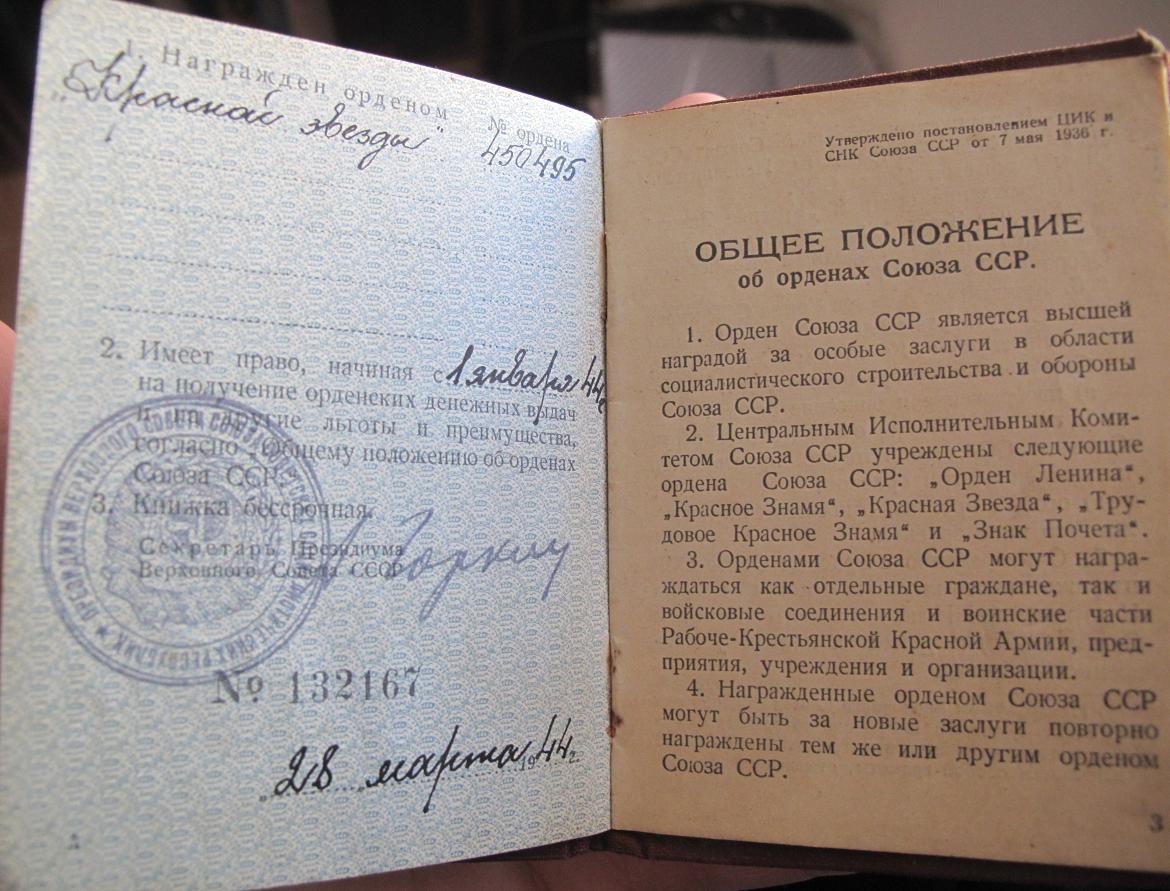 1. Награжден орденом
„Красной звезды"
№ ордена
450495
2. Имеет право, начиная с 1 января 44 г
на получение орденских денежных выдач
и на другие льготы и преимущества,
согласно „Общему положению об орденах
Союза ССР".
3. Книжка бессрочная.
Секретарь Президиума
Верховного Совета СССР
Горкин
ПРЕЗИДИУМ ВЕРХОВНОГО СОВЕТА СОЮЗА СОВЕТСКИХ СОЦИАЛИСТИЧЕСКИХ РЕСПУБЛИК
№ 132167
„28" марта 1944 г.
Утверждено постановлением ЦИК и
СНК Союза ССР от 7 мая 1936 г.
ОБЩЕЕ ПОЛОЖЕНИЕ
об орденах Союза ССР.
1. Орден Союза ССР является высшей
наградой за особые заслуги в области
социалистического строительства и обороны
Союза ССР.
2. Центральным Исполнительным Коми-
тетом Союза ССР учреждены следующие
ордена Союза ССР: „Орден Ленина“,
„Красное Знамя“, „Красная Звезда“, „Тру-
довое Красное Знамя“ и „Знак Почета“.
3. Орденами Союза ССР могут награ-
ждаться как отдельные граждане, так и
войсковые соединения и воинские части
Рабоче-Крестьянской Красной Армии, пред-
приятия, учреждения и организации.
4. Награжденные орденом Союза ССР
могут быть за новые заслуги повторно
награждены тем же или другим орденом
Союза ССР.
3